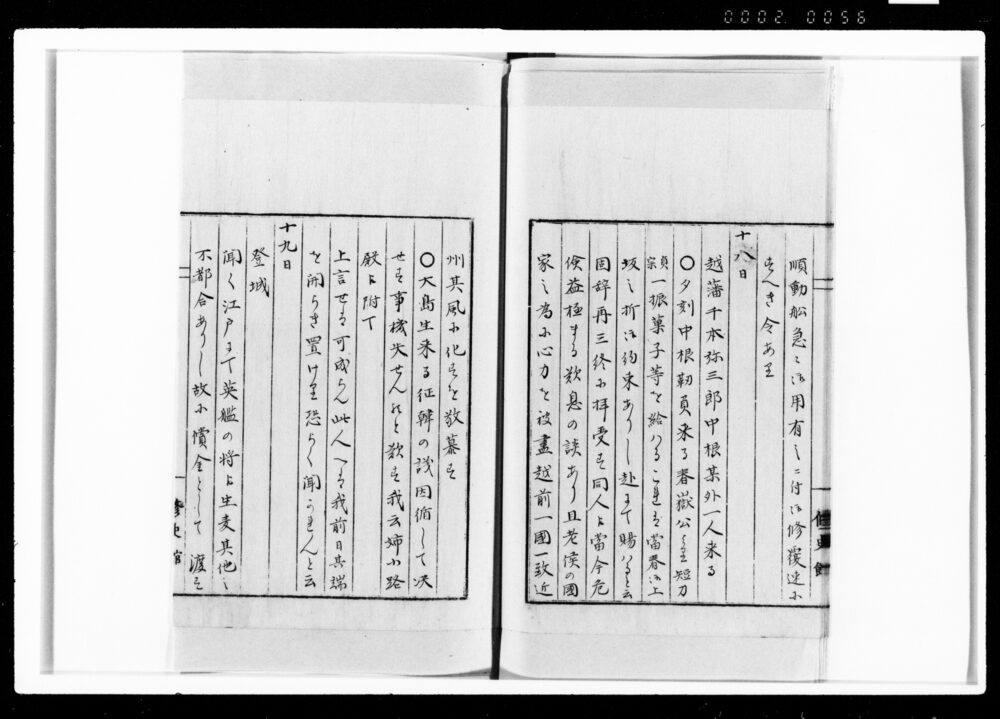 0002 0056
順動船急ニ御用有之ニ付御修覆速ニ
すへき令あり
十八日
越藩千本弥三郎中根某外一人来る
〇夕刻中根靱負来る春嶽公より短刀
貞宗一振菓子等を給はるこれは當春御上
坂之折御約束ありし赴にて賜はると云
固辞再三終に拝受す同人より當今危
倹益極まる歎息の談あり且老侯の國
家之為に心力を被盡越前一國一致近
修史館
州其風に化すを敬慕す
〇大島生来る征韓の議因循して决
せす事機失せんかと歎す我云姉小路
殿に附て
上言せは可成らん此人へは我前日其端
を開らき置けり恐らく聞かれんと云
十九日
登城
聞く江戸にて英艦の将より生麦其他之
不都合ありし故に償金として渡す
修史館